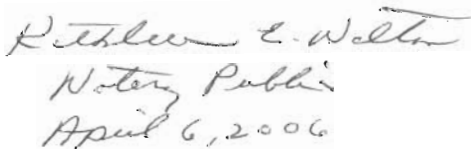 Kathleen E. Walton
Notary Public
April 6, 2006